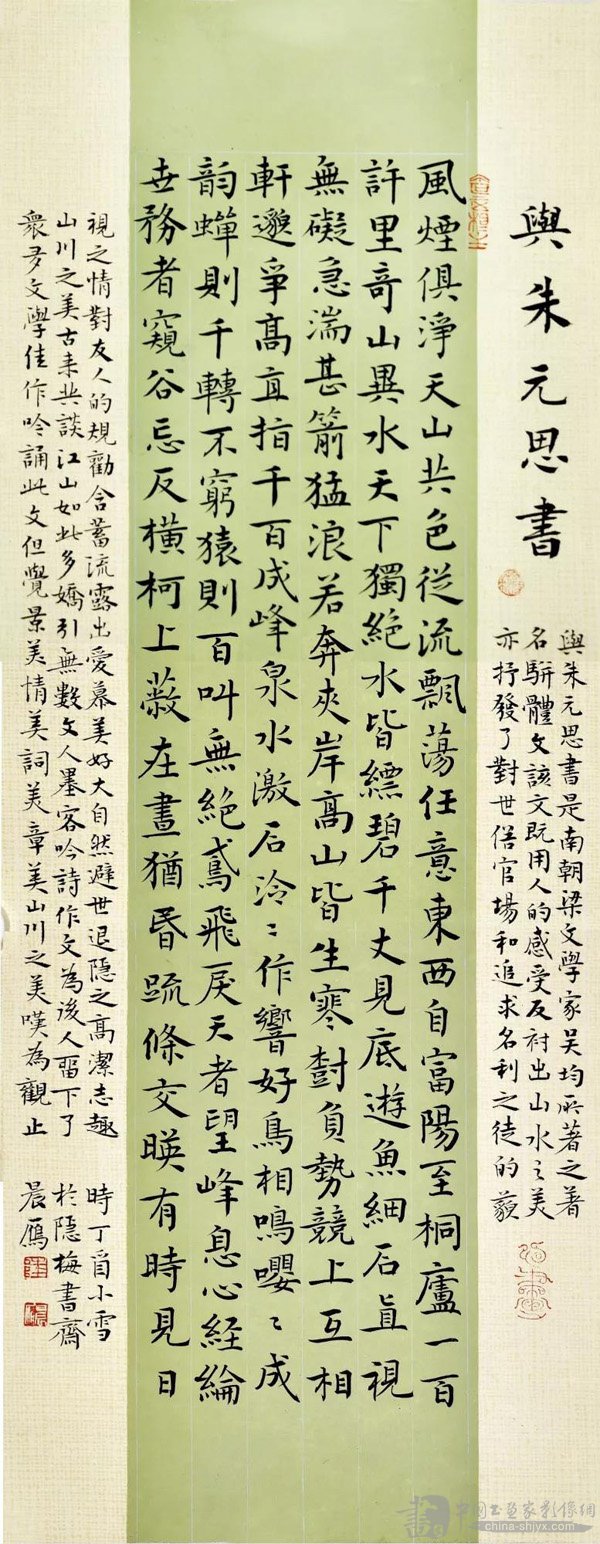 與朱元思書
與朱元思書是南朝梁文學家吴均所著之著
名駢體文該文既用人的感受反衬出山水之美
亦抒發了對世俗官場和追求名利之徒的藐
風煙俱淨天山共色從流飄蕩任意東西自富陽至桐廬一百
許里奇山異水天下獨絶水皆縹碧千丈見底遊魚細石直視
無礙急湍甚箭猛浪若奔夾岸高山皆生寒樹負勢競上互相
軒邈爭高直指千百成峰泉水激石泠〻作響好鳥相鳴嚶〻成
韵蟬則千轉不窮猿則百叫無絶鳶飛戾天者望峰息心經綸
世務者窺谷忘反横柯上蔽在晝猶昏疏條交暎有時見日
視之情對友人的規勸含蓄流露出愛慕美好大自然避世退隱之高潔志趣
山川之美古来共談江山如此多嬌引無數文人墨客吟詩作文為後人留下了
衆多文學佳作吟誦此文但覺景美情美詞美章美山川之美嘆為觀止
時丁酉小雪
於隱梅書齋
晨雁
中國書畫家影像網
china-shjyx.com